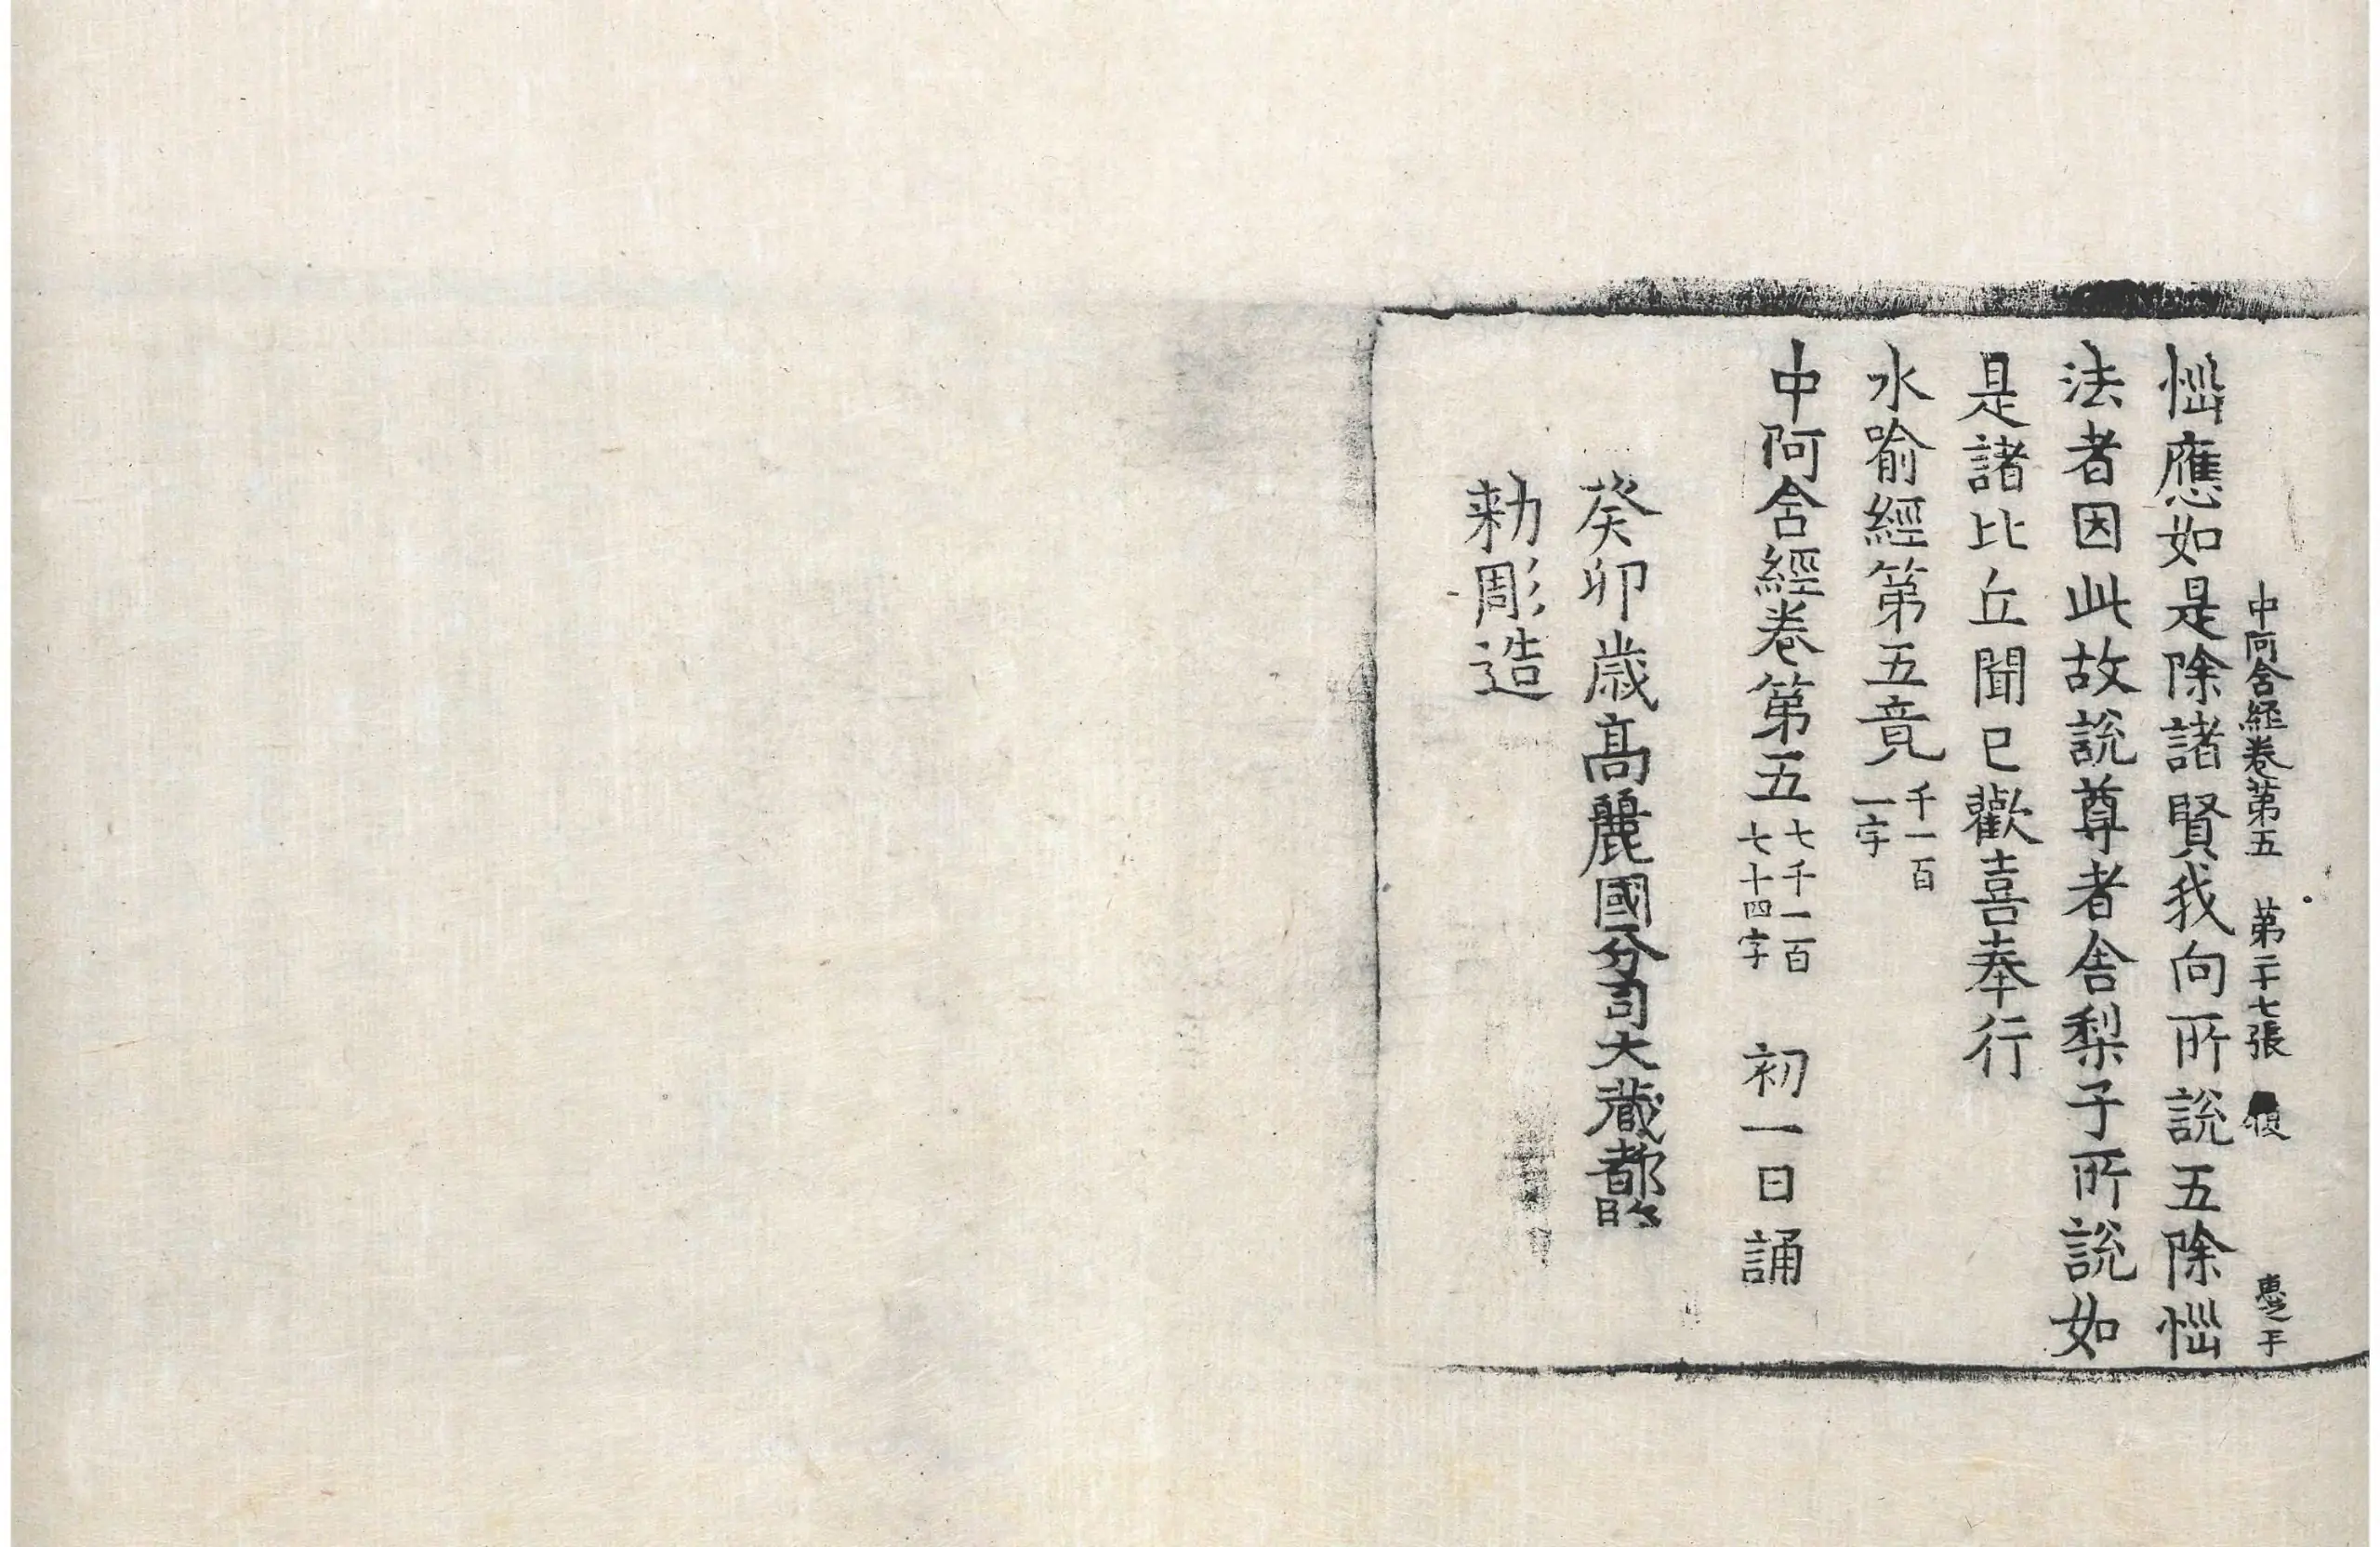 中阿含經卷第五 第二十七張 平
惱應如是除諸賢我向所說五除惱
法者因此故說尊者舍梨子所說如
是諸比丘聞已歡喜奉行
水喻經第五竟千一百一字
中阿含經卷第五七千一百七十四字 初一日誦
癸卯歲高麗國分司大藏都
勑彫造